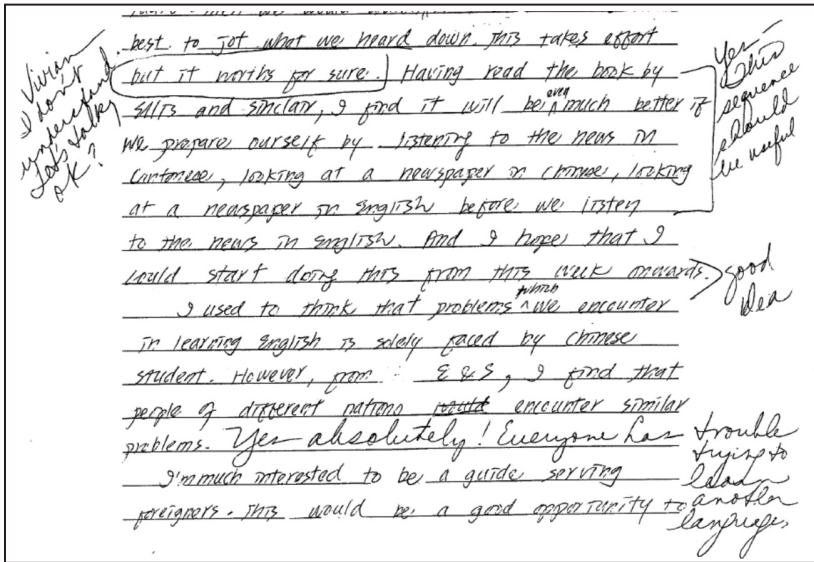 best to jot what we heard down. This takes effort
but it worths for sure. Having read the book by
Ellis and Sinclair, I find it will be even much better if
we prepare ourself by listening to the news in
Cantonese, looking at a newspaper in Chinese, looking
at a newspaper in English before we listen
to the news in English. And I hope that I
could start doing this from this week onwards.
I used to think that problems which we encounter
in learning English is solely faced by Chinese
student. However, from E & S, I find that
people of different nations would encounter similar
problems. Yes absolutely! Everyone has trouble
trying to
learn
another
languages
I'm much interested to be a guide serving
foreigners. This would be a good opportunity to
Vivian—
I don't
understand.
Let's talk,
OK?
Yes—
This
sequence
should
be useful
good
idea